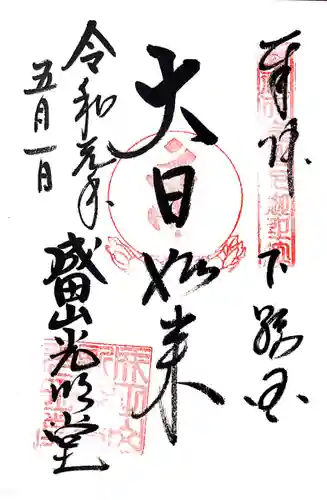 奉拝 下野国
大日如来
令和元年
五月一日
盛田山光明堂